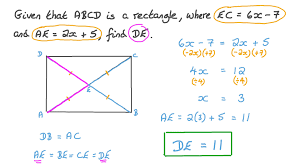 Given that ABCD is a rectangle, where EC = 6x - 7
and AE = 2x + 5, find DE.
D
C
E
A
B
DB = AC
AE = BE = CE = DE
6x - 7 = 2x + 5
(-2x)(+7) (-2x)(+7)
4x = 12
(÷4) (÷4)
x = 3
AE = 2(3) + 5 = 11
DE = 11